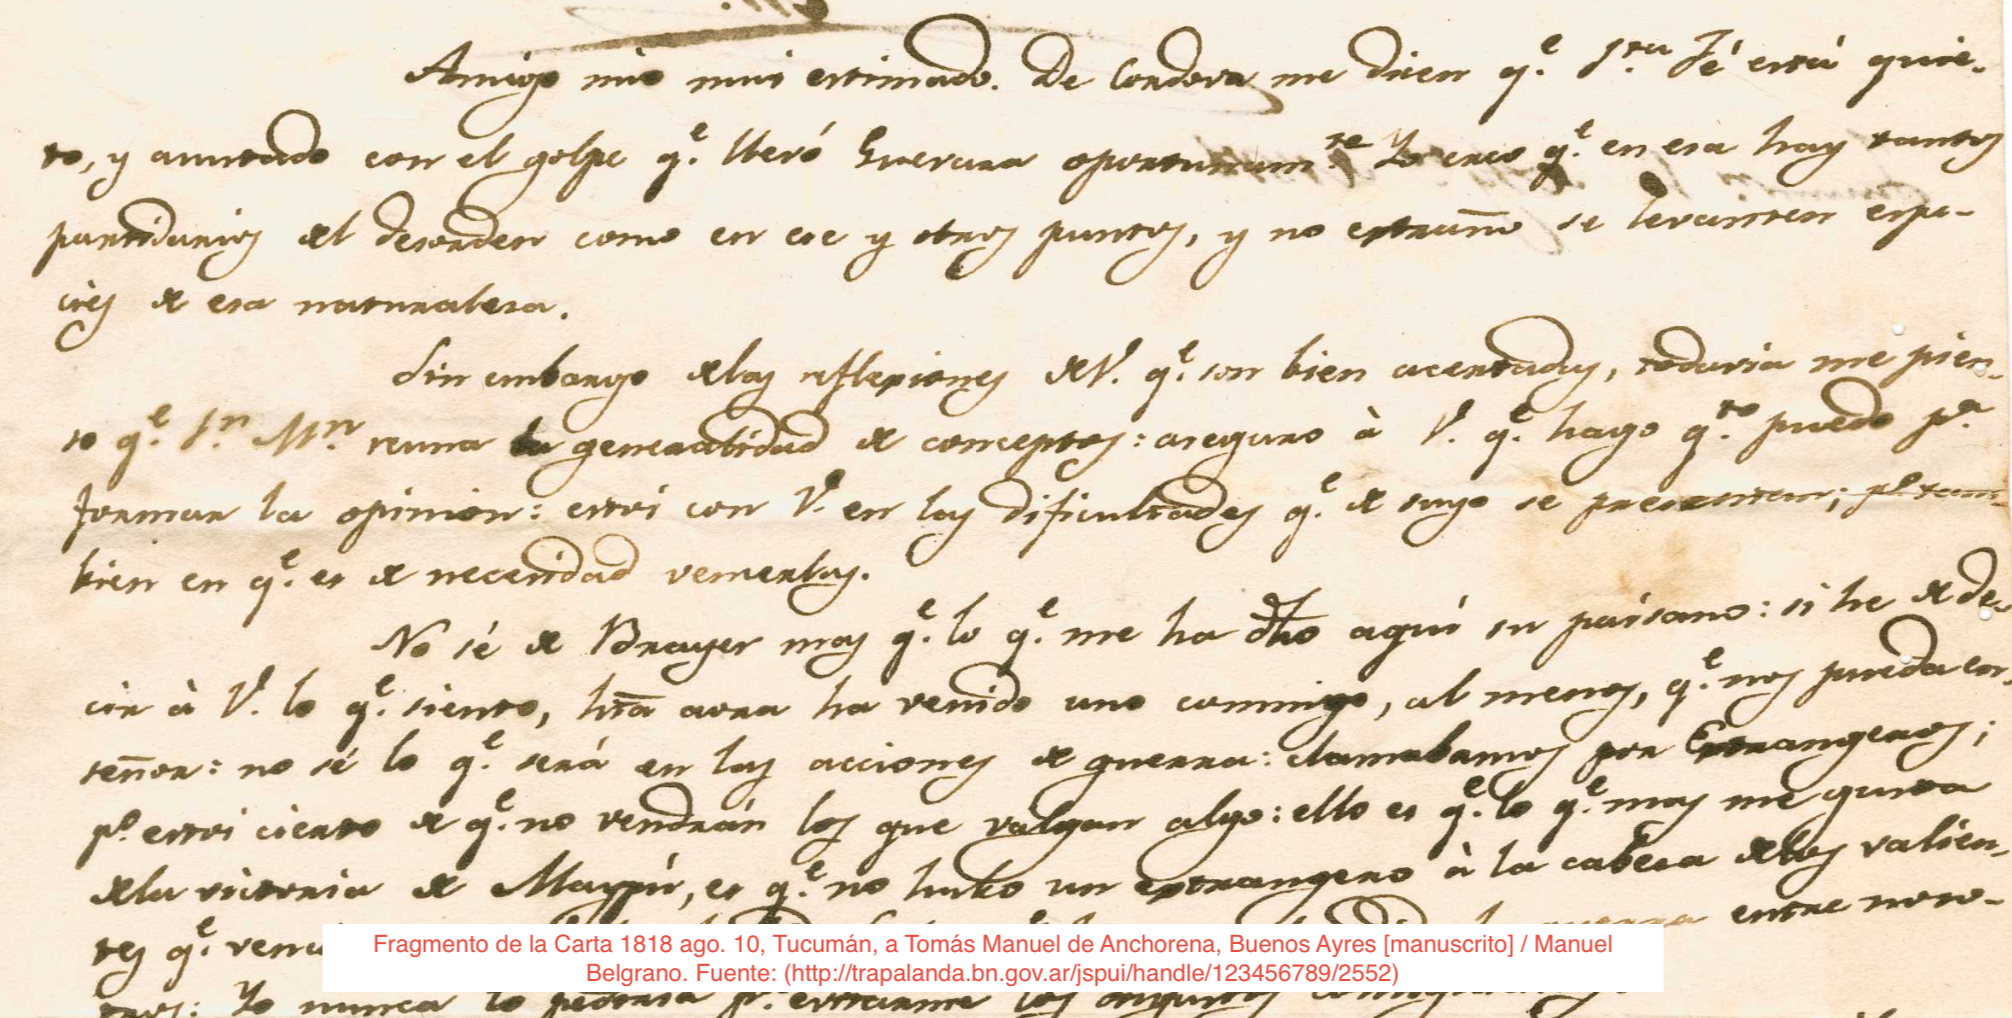 Amigo mio mui estimado. De Cordova me dicen q.e S.ta Fé está quie-
to, y asustado con el golpe q.e llevó Guevara oportunam.te Yo creo q.e en esa hay tantos
partidarios del desorden como en ese y otros puntos, y no extraño se levanten espe-
cies de esa naturalesa.
Sin embargo delas reflexiones de V. q.e son bien acertadas, todavia me pien-
so q.e S.n M.n reuna la generalidad de conceptos: aseguro à V. q.e hago q.to puedo p.a
formar la opinion: estoi con V. en las dificultades q.e de suyo se presentan; p.o tam-
bien en q.e es de necesidad vencerlas.
No sé de Brayer mas q.e lo q.e me ha dho aquí su paisano: si he de de-
cir à V. lo q.e siento, hta aora ha venido uno conmigo, al menos, q.e nos pueda en-
señar: no sé lo q.e será en las acciones de guerra: clamabamos por Extrangeros;
p.o estoi cierto de q.e no vendrán los que valgan algo: ello es q.e lo q.e mas me gusta
dela victoria de Maypú, es q.e no hubo un extrangero à la cabesa delos valien-
tes q.e entre noso-
tros: Yo nunca lo
Fragmento de la Carta 1818 ago. 10, Tucumán, a Tomás Manuel de Anchorena, Buenos Ayres [manuscrito] / Manuel
Belgrano. Fuente: (http://trapalanda.bn.gov.ar/jspui/handle/123456789/2552)